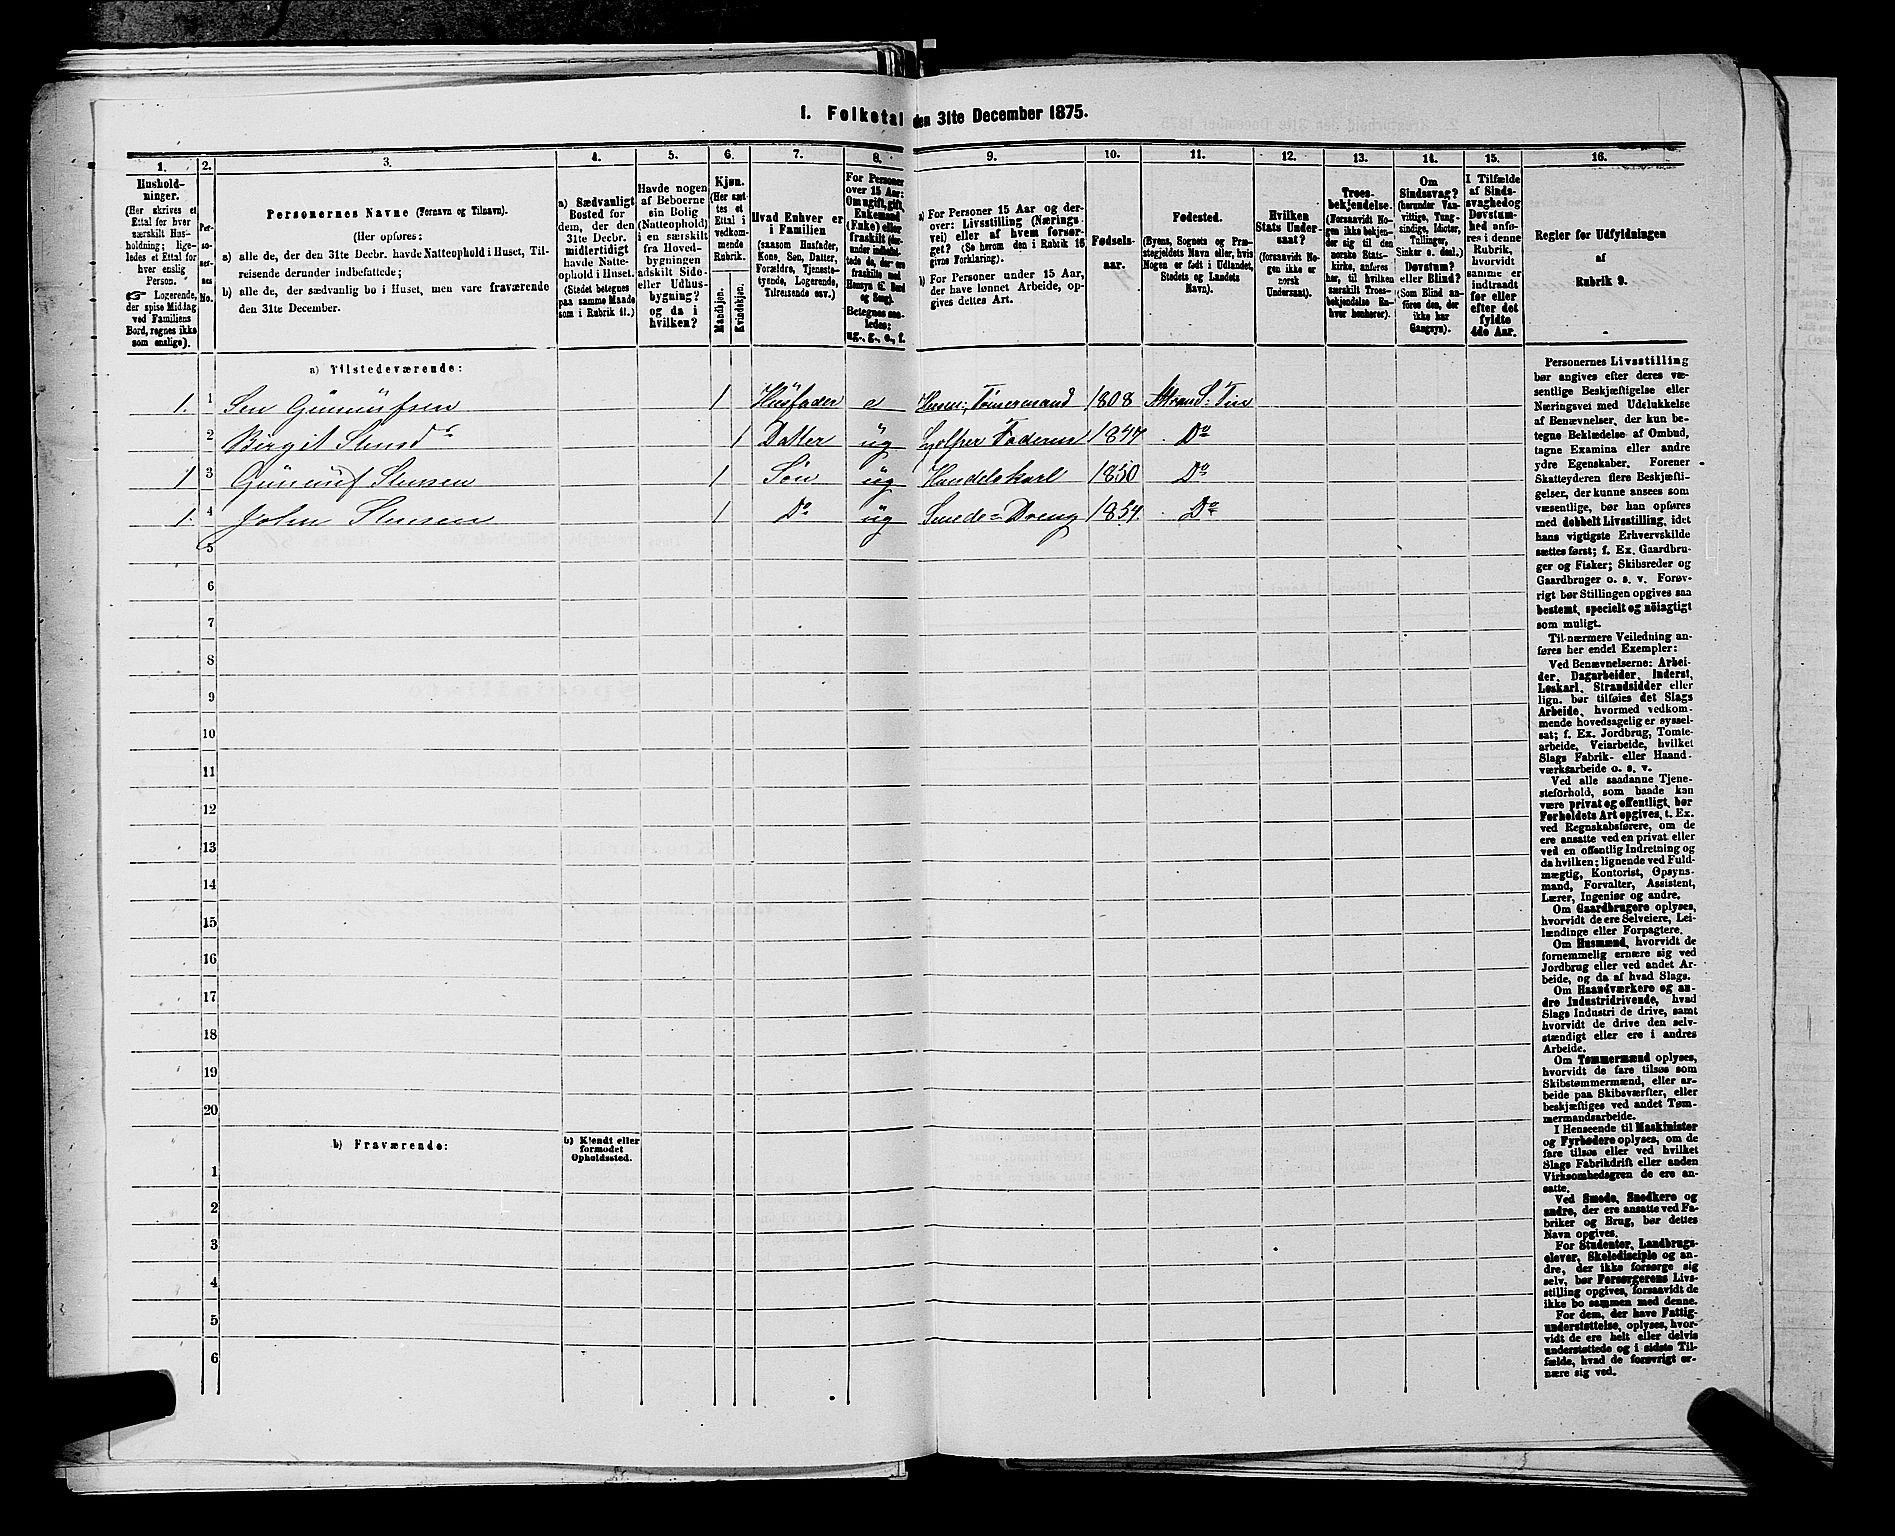 1. Folketal den 31te December 1875.
1.
Hushold-
ninger.
(Her skrives et
Ettal for hver
særskilt Hus-
holdning; lige-
ledes et Ettal for
hver enslig
Person.
☞ Logerende,
der spise Midlag
ved Familiens
Bord, regnes ikke
som enslige).
2.
Per-
so-
ner-
nes
No.
3.
Personernes Navne (Fornavn og Tilnavn).
(Her opføres:
a) alle de, der den 31te Decbr. havde Natteophold i Huset, Til-
reisende derunder indbefattede;
b) alle de, der sædvanlig bo i Huset, men vare fraværende
den 31te December.
4.
a) Sædvanligt
Bosted for
dem, der den
31te Decbr.
midlertidigt
havde Natte-
ophold i Huset.
(Stedet betegnes
paa samme Maade
som i Rubrik 11.)
5.
Havde nogen
af Beboerne
sin Bolig
(Natteophold)
i en særskilt
fra Hoved-
bygningen
adskilt Side-
eller Udhus-
bygning?
og da i
hvilken?
6.
Kjøn.
(Her sæt-
tes et
Ettal i
vedkom-
mende
Rubrik.
Mandkjøn.
Kvindekjøn.
7.
Hvad Enhver er
i Familien
(saasom Husfader,
Kone, Søn, Datter,
Forældre, Tjeneste-
tyende, Logerende,
Tilreisende osv.)
8.
For Personer
over 15 Aar:
Om ugift, gift,
Enkemand
(Enke) eller
fraskilt (der-
under indbefat-
tede de, der ere
fraskilte med
Hensyn til Bord
og Seng).
Betegnes saa-
ledes:
ug., g., e., f.
9.
a) For Personer 15 Aar og der-
over: Livsstilling (Nærings-
vei) eller af hvem forsør-
get? (Se herom den i Rubrik 16
givne Forklaring).
b) For Personer under 15 Aar,
der have lønnet Arbeide, op-
gives dettes Art.
10.
Fødsels-
aar.
11.
Fødested.
(Byens, Sognets og Præ-
stegjeldets Navn eller, hvis
Nogen er født i Udlandet,
Stedets og Landets
Navn).
12.
Hvilken
Stats Under-
saat?
(forsaavidt No-
gen ikke er
norsk
Undersaat).
13.
Troes-
bekjendelse.
(Forsaavidt No-
gen ikke bekjen-
der sig til den
norske Stats-
kirke, anføres
her, til hvilken
særskilt Troes-
bekjendelse En-
hver henhører).
14.
Om
Sindssvag?
(herunder Van-
vittige, Tung-
sindige, Idioter,
Tullinger,
Sinker o. desl.)
Døvstum?
eller Blind?
(Som Blind an-
føres den, der
ikke har
Gangsyn).
15.
I Tilfælde
af Sinds-
svaghed og
Døvstum-
hed anfø-
res i denne
Rubrik,
hvorvidt
samme er
indtraadt
før eller
efter det
fyldte
4de Aar.
16.
Regler for Udfyldningen
af
Rubrik 9.
a) Tilstedeværende:
1. 1 Sen Gunnufsen 1 Husfader e Husm: Tømermand 1808 Atraa S: Tin
2 Birgit Stensd 1 Datter ug Hjelper Faderen 1847 Do
1 3 Gunnuf Stensen 1 Søn ug Handelskarl 1850 Do
1. 4 John Stensen 1 Do ug Smede-Dreng 1854. Do
5
6
7
8
9
10
11
12
13
14
15
16
17
18
19
20
b) Fraværende:
b) Kjendt eller
formodet
Opholdssted.
1
2
3
4
5
6
Personernes Livsstilling
bør angives efter deres væ-
sentlige Beskjæftigelse eller
Næringsvei med Udslukkelse
af Benævnelser, der kun be-
tegne Beklædelse af Ombud,
tagne Examina eller andre
ydre Egenskaber. Forener
Skatteyderen flere Beskjæfti-
gelser, der kunne ansees som
væsentlige, bør han opføres
med dobbelt Livsstilling, idet
hans vigtigste Erhvervskilde
sættes først; f. Ex. Gaardbru-
ger og Fisker; Skibsreder og
Gaardbruger o. s. v. Forøv-
rigt bør Stillingen opgives saa
bestemt, specielt og nöiagtigt
som muligt.
Til nærmere Veiledning an-
føres her endel Exempler:
Ved Benævnelserne: Arbei-
der, Dagarbeider, Inderst,
Løskarl, Strandsidder eller
lign. bør tilføies det Slags
Arbeide, hvormed vedkom-
mende hovedsagelig er syssel-
sat; f. Ex. Jordbrug, Tomte-
arbeide, Veiarbeide, hvilket
Slags Fabrik- eller Haand-
værksarbeide o. s. v.
Ved alle saadanne Tjene-
steforhold, som baade kan
være privat og offentligt, bør
Forholdets Art opgives, t. Ex.
ved Regnskabsførere, om de
ere ansatte ved en privat eller
ved en offentlig Indretning og
da hvilken; lignende ved Fuld-
mægtig, Kontorist, Opsyns-
mand, Forvalter, Assistent,
Lærer, Ingeniør og andre.
Om Gaardbrugere oplyses,
hvorvidt de ere Selveiere, Lei-
lændinge eller Forpagtere.
Om Husmænd, hvorvidt de
fornemmelig ernære sig ved
Jordbrug eller ved andet Ar-
beide, og da af hvad Slags.
Om Haandværkere og an-
dre Industridrivende, hvad
Slags Industri de drive, samt
hvorvidt de drive den selv-
stændigt eller ere i andres
Arbeide.
Om Tømmermænd oplyses,
hvorvidt de fare tilsøs som
Skibstømmermænd, eller ar-
beide paa Skibsværfter, eller
beskjæftiges ved andet Tøm-
mermandsarbeide.
I Henseende til Maskinister
og Fyrbødere oplyses, om de
fare tilsøs eller ved hvilket
Slags Fabrikdrift eller anden
Virksomhedsgren de ere an-
satte.
Ved Smede, Snedkere og
andre, der ere ansatte ved Fa-
briker og Brug, bør dettes
Navn opgives.
For Studenter, Landbrugs-
elever, Skoledisciple og an-
dre, der ikke forsørge sig
selv, bør Forsørgerens Livs-
stilling opgives, forsaavidt de
ikke bo sammen med denne.
For dem, der have Fattig-
understøttelse, oplyses, hvor-
vidt de ere helt eller delvis
understøttede og i sidste Til-
fælde, hvad de forøvrigt er-
nære sig ved.